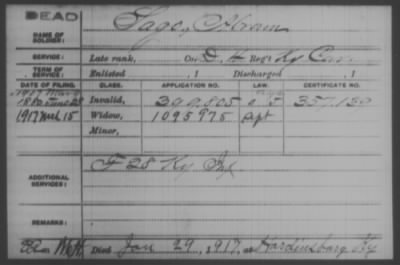 DEAD
NAME OF SOLDIER: Sage, Abram
SERVICE: Late rank, Co. D, H Reg't Ky Cav
TERM OF SERVICE: Enlisted , 1 Discharged , 1
DATE OF FILING. CLASS. APPLICATION NO. CERTIFICATE NO.
1880 June 28 Invalid, 399.805 357.139
1917 Mch 15 Widow, 1095975 Apt
Minor,
ADDITIONAL SERVICES: F 28 Ky Inf
REMARKS:
Died Jan 29, 1917, at Hardinsburg Ky